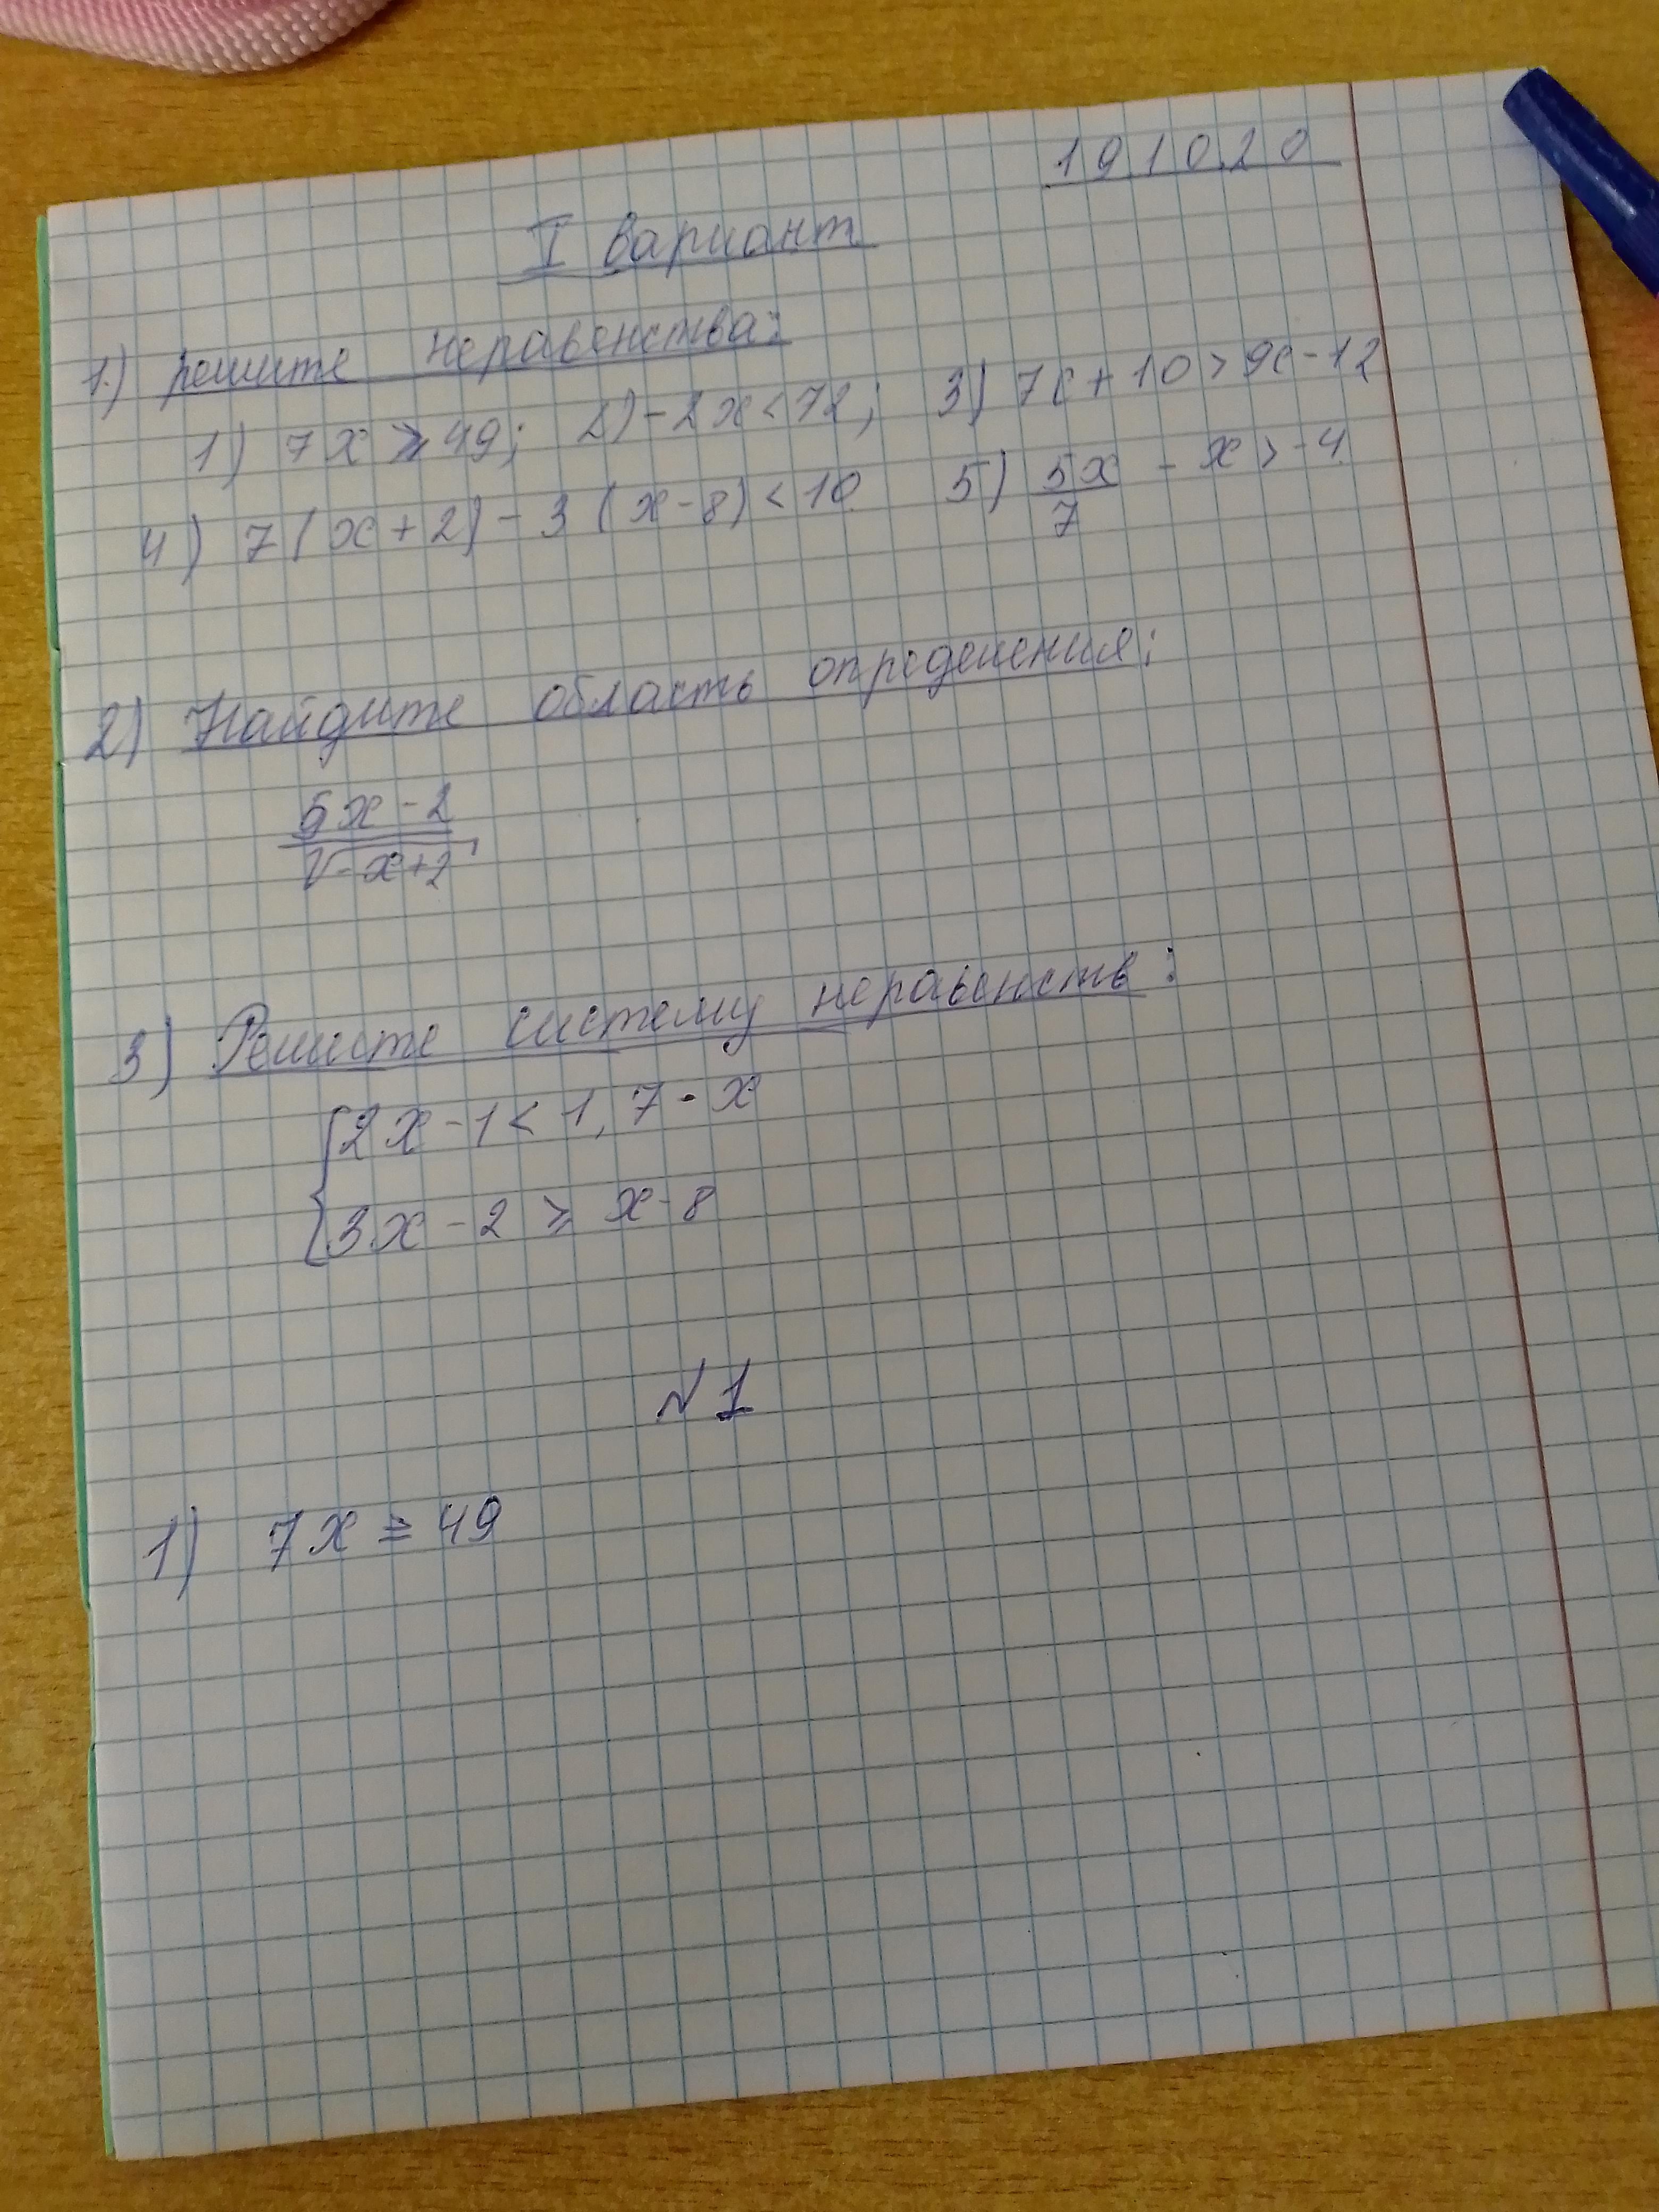 19.10.20
I вариант
1.) решите неравенства:
1) 7x ⩾ 49; 2) -2x < 72; 3) 7c + 10 > 9c - 12
4) 7(x + 2) - 3(x - 8) < 10 5) 5x/7 - x > -4
2) Найдите область определения:
5x - 2
√-x+2
3) Решите систему неравенств:
{2x - 1 < 1,7 - x
3x - 2 ⩾ x - 8
№1
1) 7x ⩾ 49